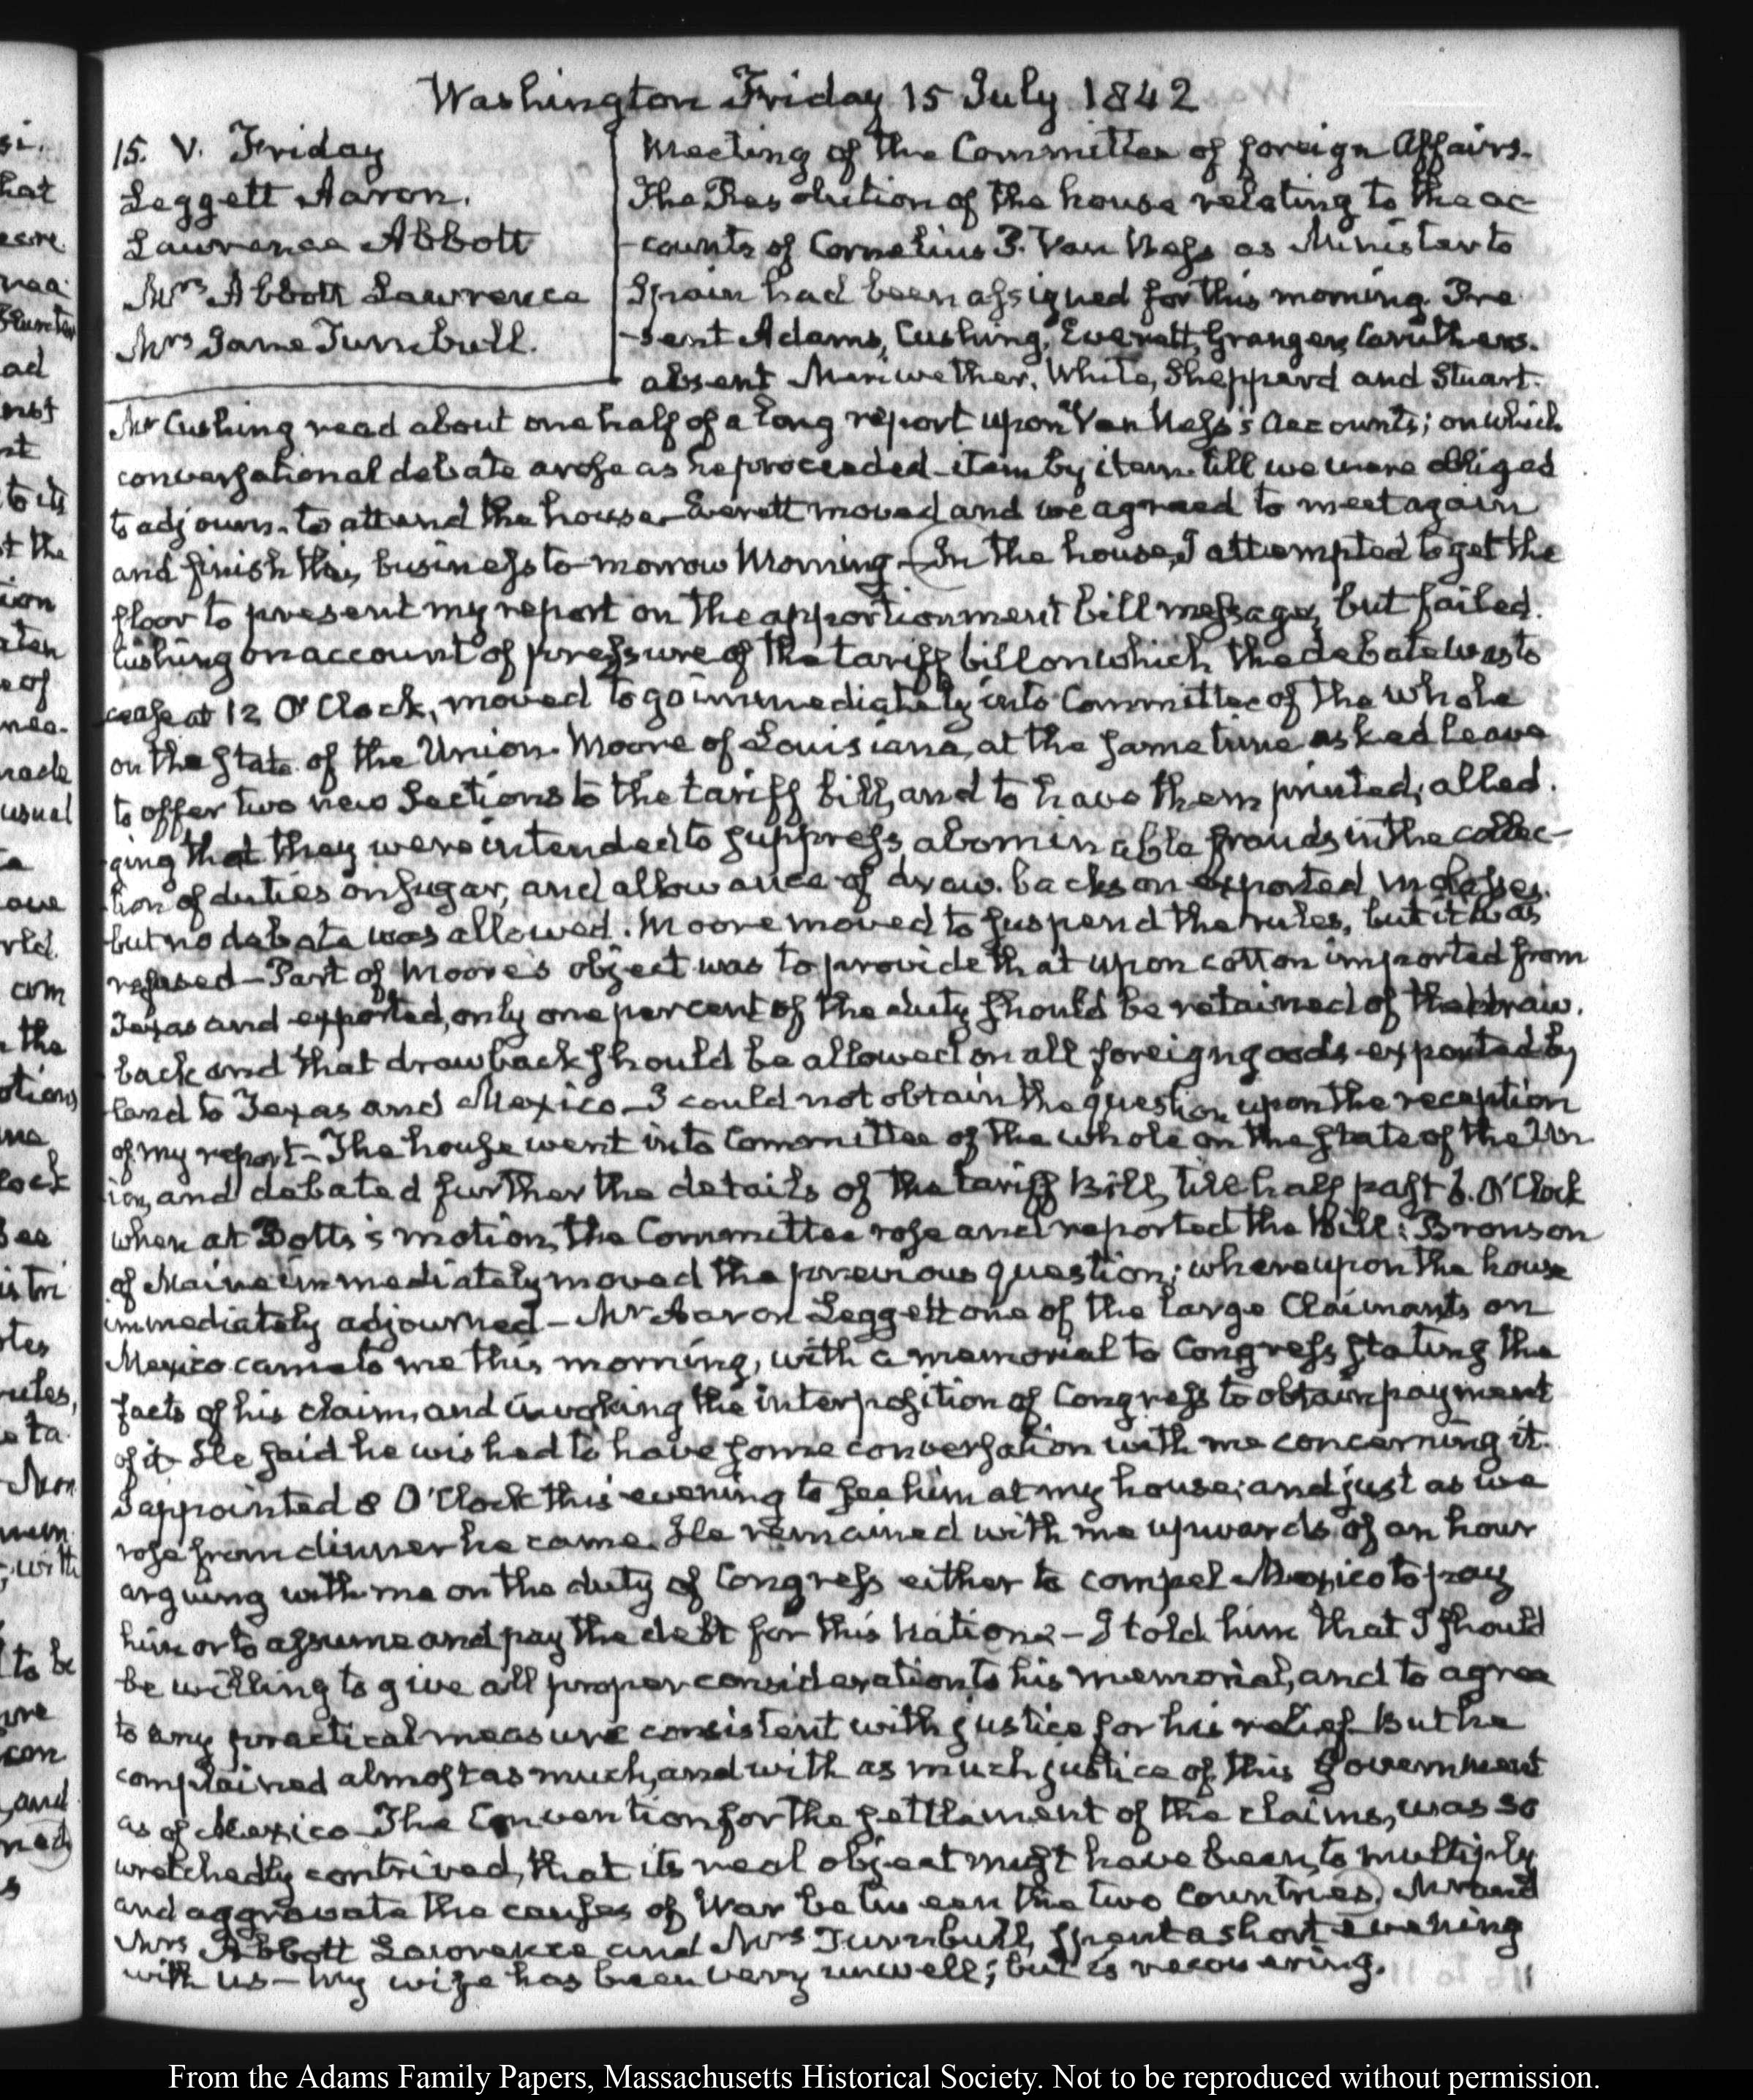 Washington Friday 15 July 1842
15. V. Friday
Leggett Aaron.
Lawrence Abbott
Mrs Abbott Lawrence
Mrs Jane Turnbull.
Meeting of the Committee of foreign Affairs.
The Resolution of the house relating to the ac
-counts of Cornelius P. Van Ness as Minister to
Spain had been assigned for this morning. Pre
-sent Adams, Cushing, Everett, Granger, Caruthers.
absent Meriwether, White, Sheppard and Stuart.
Mr Cushing read about one half of a long report upon Van Ness's accounts; on which
conversational debate arose as he proceeded item by item till we were obliged
to adjourn to attend the house. Everett moved and we agreed to meet again
and finish this business to-morrow Morning—In the house, I attempted to get the
floor to present my report on the apportionment bill message, but failed.
Cushing on account of pressure of the tariff bill on which the debate was to
cease at 12 O'Clock, moved to go immediately into Committee of the whole
on the State of the Union. Moore of Louisiana, at the same time asked leave
to offer two new Sections to the tariff bill, and to have them printed; alled.
ging that they were intended to suppress abominable frauds in the collec-
tion of duties on sugar, and allowance of draw.backs on exported molasses.
but no debate was allowed. Moore moved to suspend the rules, but it was
refused—Part of Moore's object was to provide that upon cotton imported from
Texas and exported, only one per cent of the duty should be retained of the draw.
back and that drawback should be allowed on all foreign goods exported by
land to Texas and Mexico—I could not obtain the question upon the reception
of my report—The house went into Committee of the whole on the state of the Un
ion, and debated further the details of the tariff Bill, till half past 6. O'Clock
when at Botts's motion, the Committee rose and reported the Bill: Bronson
of Maine immediately moved the previous question; whereupon the house
immediately adjourned—Mr Aaron Leggett one of the large Claimants on
Mexico came to me this morning, with a memorial to Congress stating the
facts of his claim, and invoking the interposition of Congress to obtain payment
of it. He said he wished to have some conversation with me concerning it.
I appointed 8 O'Clock this evening to see him at my house; and just as we
rose from dinner he came. He remained with me upwards of an hour
arguing with me on the duty of Congress either to compel Mexico to pay
him or to assume and pay the debt for this Nation—I told him that I should
be willing to give all proper consideration to his memorial, and to agree
to any practical measure consistent with justice for his relief—But he
complained almost as much, and with as much justice of this Government
as of Mexico—The Convention for the settlement of the claims, was so
wretchedly contrived, that its real object might have been, to multiply
and aggravate the causes of War between the two Countries) Mr and
Mrs Abbott Lawrence and Mrs Turnbull, spent a short evening
with us—my wife has been very unwell; but is recovering.
si.
hat
ad
to its
t the
ion
of
usual
rld.
com
the
otions
me
rules,
with
to be
con
and
From the Adams Family Papers, Massachusetts Historical Society. Not to be reproduced without permission.